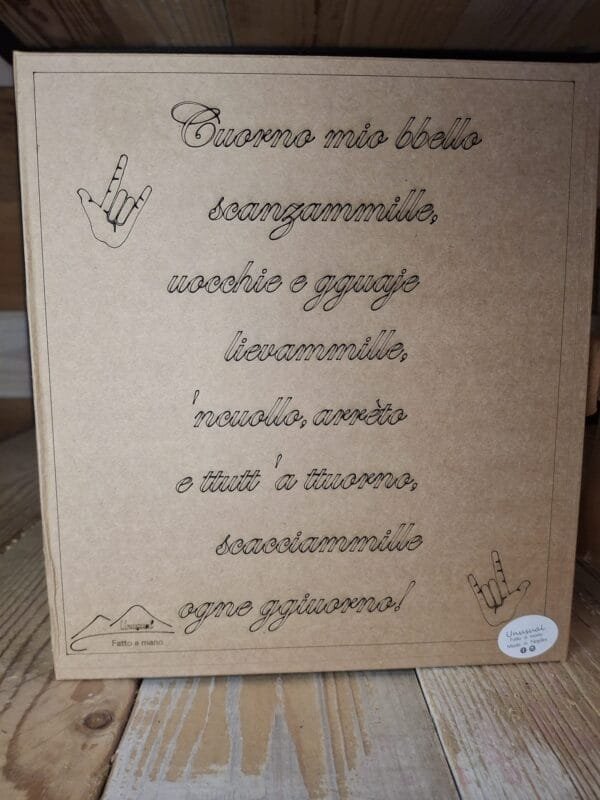 Cuorno mio bbello
scanzammille,
uocchie e gguaje
lievammille,
'ncuollo, arrèto
e ttutt 'a ttuorno,
scacciammille
ogne ggiuorno!
Unusual
Fatto a mano
Unusual
Fatto a mano
Made in Naples